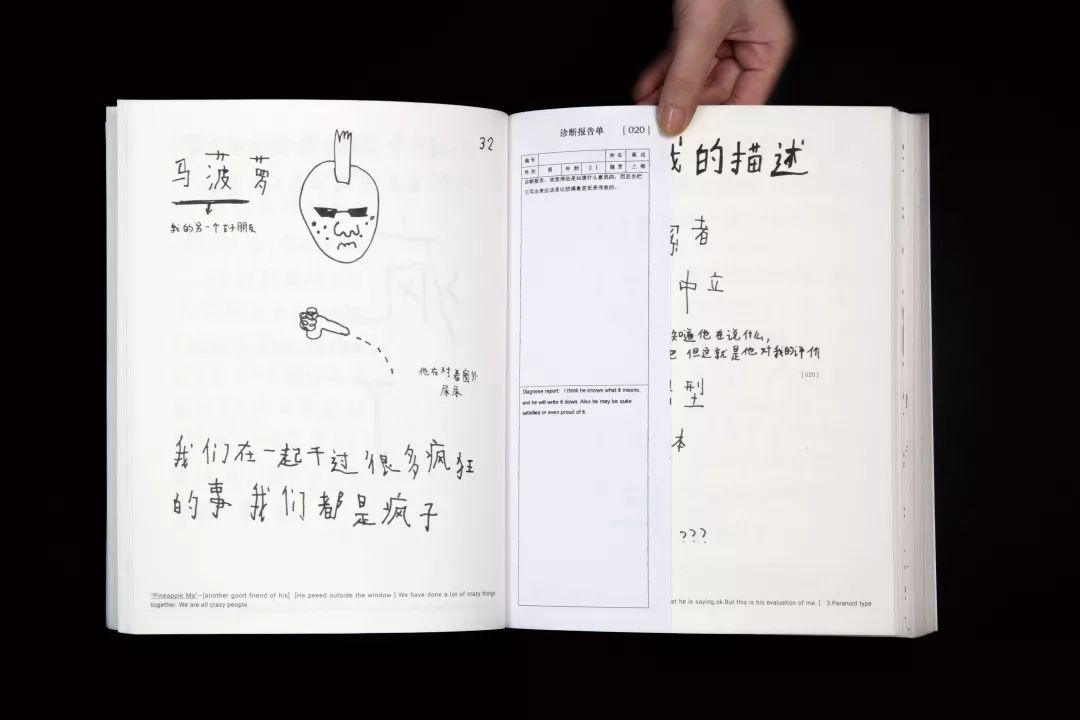 32
马菠萝
我的另一个好朋友
他在对着窗外
尿尿
我们在一起干过很多疯狂
的事 我们都是疯子
"Pineapple Ma"—[another good friend of his] [He peeed outside the window ] We have done a lot of crazy things
together. We are all crazy people
诊断报告单 [ 020 ]
编号 姓名
性别 男 年龄 21 籍贯 上海
诊断报告：我觉得他是知道什么意思的，而且会把
它写出来应该是比较满意甚至是得意的。
Diagnose report: I think he knows what it means,
and he will write it down. Also he may be quite
satisfied or even proud of it.
我的描述
者
中立
知道他在说什么，
但这就是他对我的评价
[ 020 ]
型
本
???
at he is saying ok.But this is his evaluation of me. ] 3.Paranoid type